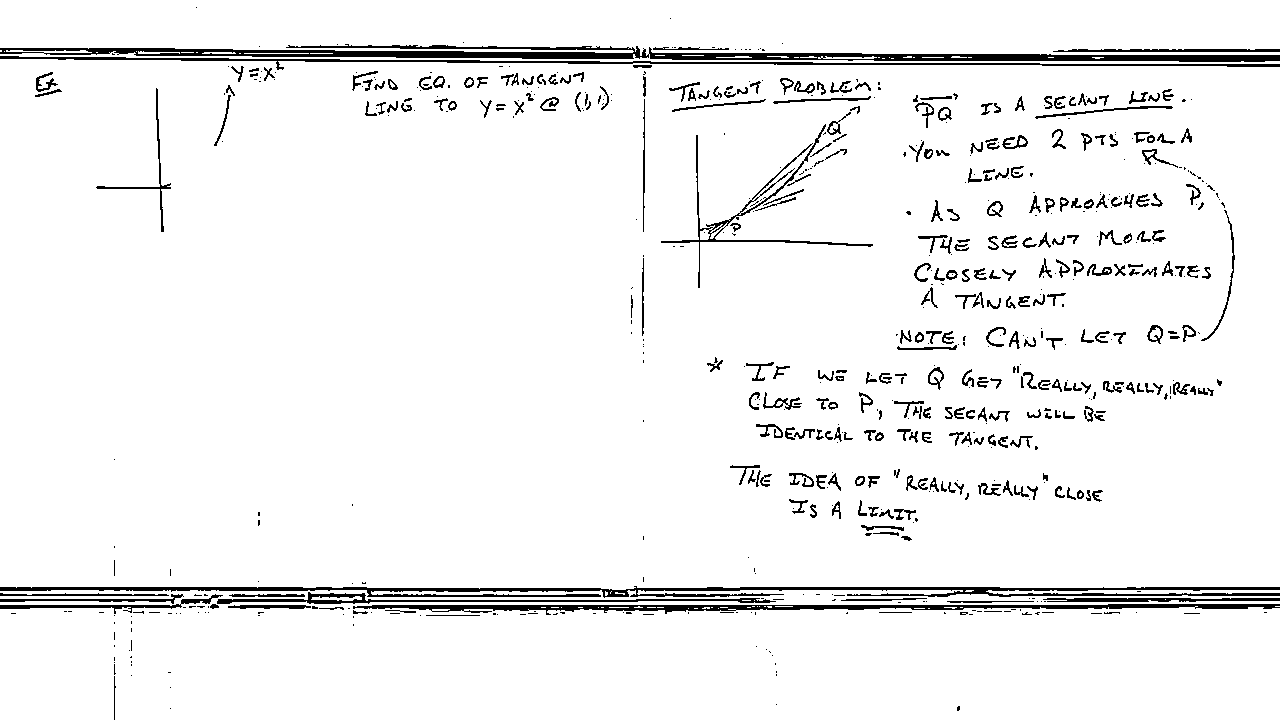 Ex
Y=X²
FIND EQ. OF TANGENT
LINE TO Y=X² @ (1,1)
TANGENT PROBLEM:
Q
P
PQ IS A SECANT LINE.
·YOU NEED 2 PTS FOR A
LINE.
· AS Q APPROACHES P,
THE SECANT MORE
CLOSELY APPROXIMATES
A TANGENT.
NOTE: CAN'T LET Q=P
* IF WE LET Q GET "REALLY, REALLY, REALLY"
CLOSE TO P, THE SECANT WILL BE
IDENTICAL TO THE TANGENT.
THE IDEA OF "REALLY, REALLY" CLOSE
IS A LIMIT.